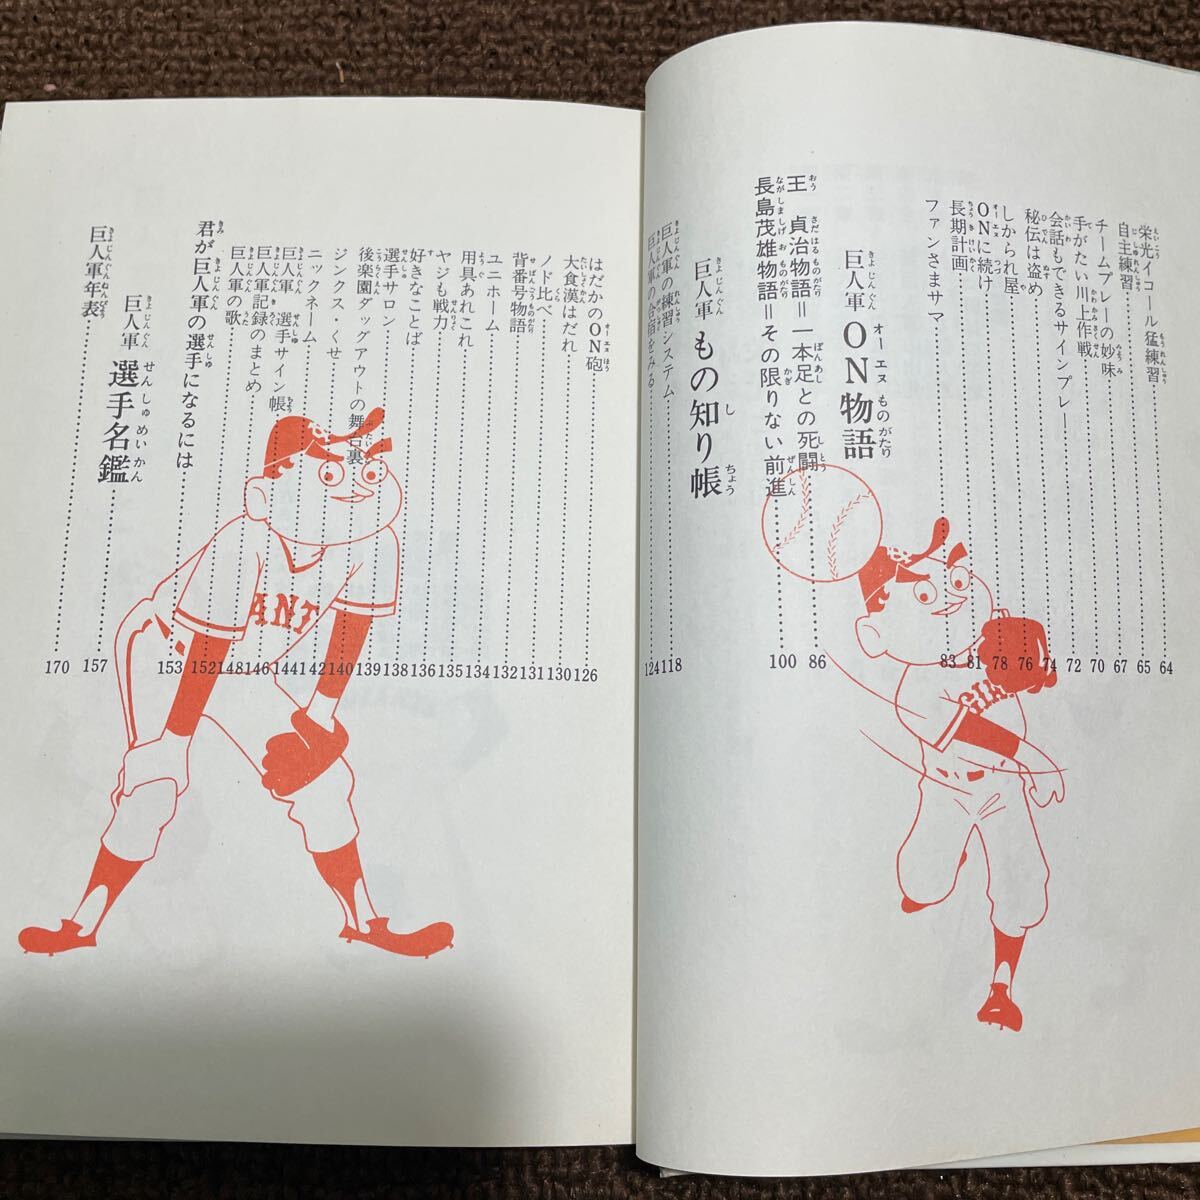 栄光イコール猛練習 64
自主練習 65
チームプレーの妙味 67
手がたい川上作戦 70
会話もできるサインプレー 72
秘伝は盗め 74
しかられ屋 76
ONに続け 78
長期計画 81
ファンさまサマ 83
巨人軍 ON物語
王 貞治物語＝一本足との死闘 86
長島茂雄物語＝その限りない前進 100
巨人軍 もの知り帳
巨人軍の練習システム 118
巨人軍の合宿をみる 124
はだかのON砲 126
大食漢はだれ 130
ノド比べ 131
背番号物語 132
ユニホーム 134
用具あれこれ 135
ヤジも戦力 136
好きなことば 138
選手サロン 139
後楽園ダッグアウトの舞台裏 140
ジンクス・くせ 142
ニックネーム 144
巨人軍 選手サイン帳 146
巨人軍記録のまとめ 148
巨人軍の歌 152
君が巨人軍の選手になるには 153
巨人軍 選手名鑑 157
巨人軍年表 170
ANT
GIA